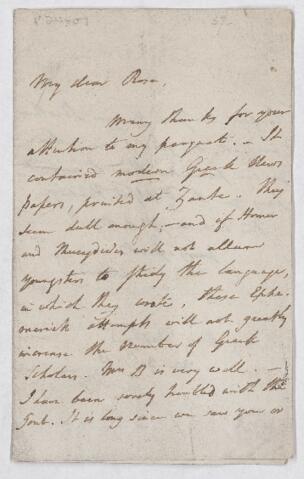 My dear Rose,
Many thanks for your
attention to my parquet. - It
contained modern Greek News
papers, printed at Zante. They
seem dull enough, - and if Homer
and Thucydides will not allure
youngsters to study the language,
in which they wrote, these Ephe-
merick attempts will not greatly
increase the number of Greek
Scholars. Mrs B is very well. -
I have been sorely troubled with the
Gout. It is long since we saw you or